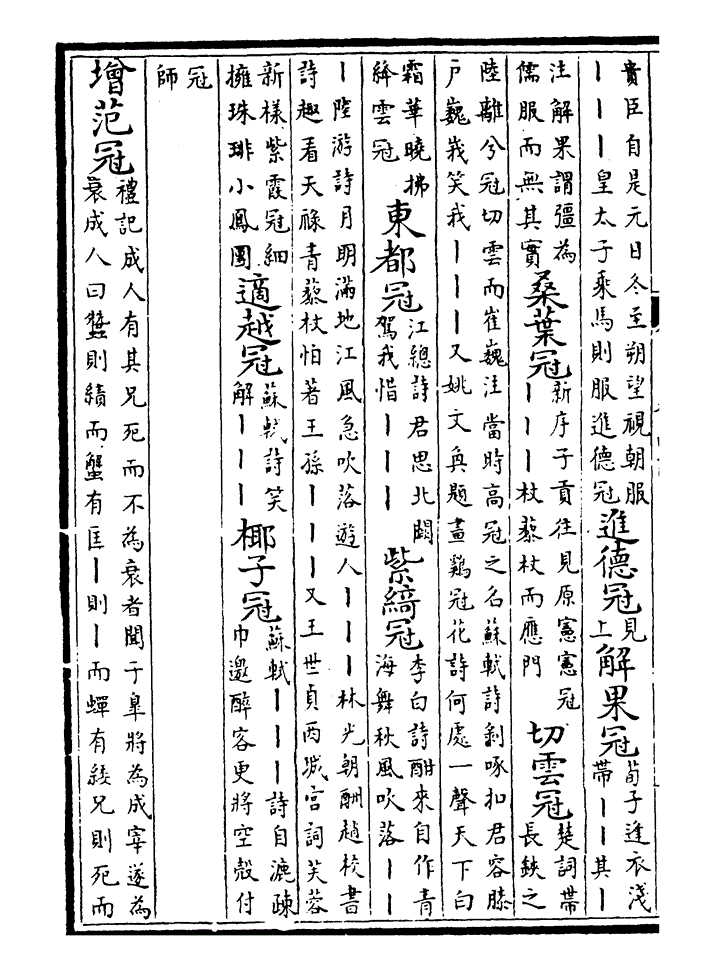 貴臣自是元日冬至朔望視朝服
｜｜｜皇太子乘馬則服進德冠
進德冠
見
上
解果冠
荀子逢衣淺
帶｜｜其｜
注解果謂彊為
儒服而無其實
桑葉冠
新序子貢往見原憲憲冠
｜｜｜杖藜杖而應門
切雲冠
楚詞帶
長鋏之
陸離兮冠切雲而崔巍注當時高冠之名蘇軾詩剝啄扣君容膝
户巍峩笑我｜｜｜又姚文奐題畫鷄冠花詩何處一聲天下白
霜華曉拂
絳雲冠
東都冠
江總詩君思北闕
駕我惜｜｜｜
紫綺冠
李白詩酣來自作青
海舞秋風吹落｜｜
｜陸游詩月明滿地江風急吹落遊人｜｜｜林光朝酬趙校書
詩趣看天祿青藜杖怕著王孫｜｜｜又王世貞西城宮詞芙蓉
新樣紫霞冠細
擁珠琲小鳳團
適越冠
蘇軾詩笑
解｜｜｜
椰子冠
蘇軾｜｜｜詩自漉疎
巾邀醉客更將空殼付
冠
師
增范冠
禮記成人有其兄死而不為衰者聞子臯將為成宰遂為
衰成人曰蠶則績而蟹有匡｜則｜而蟬有緌兄則死而